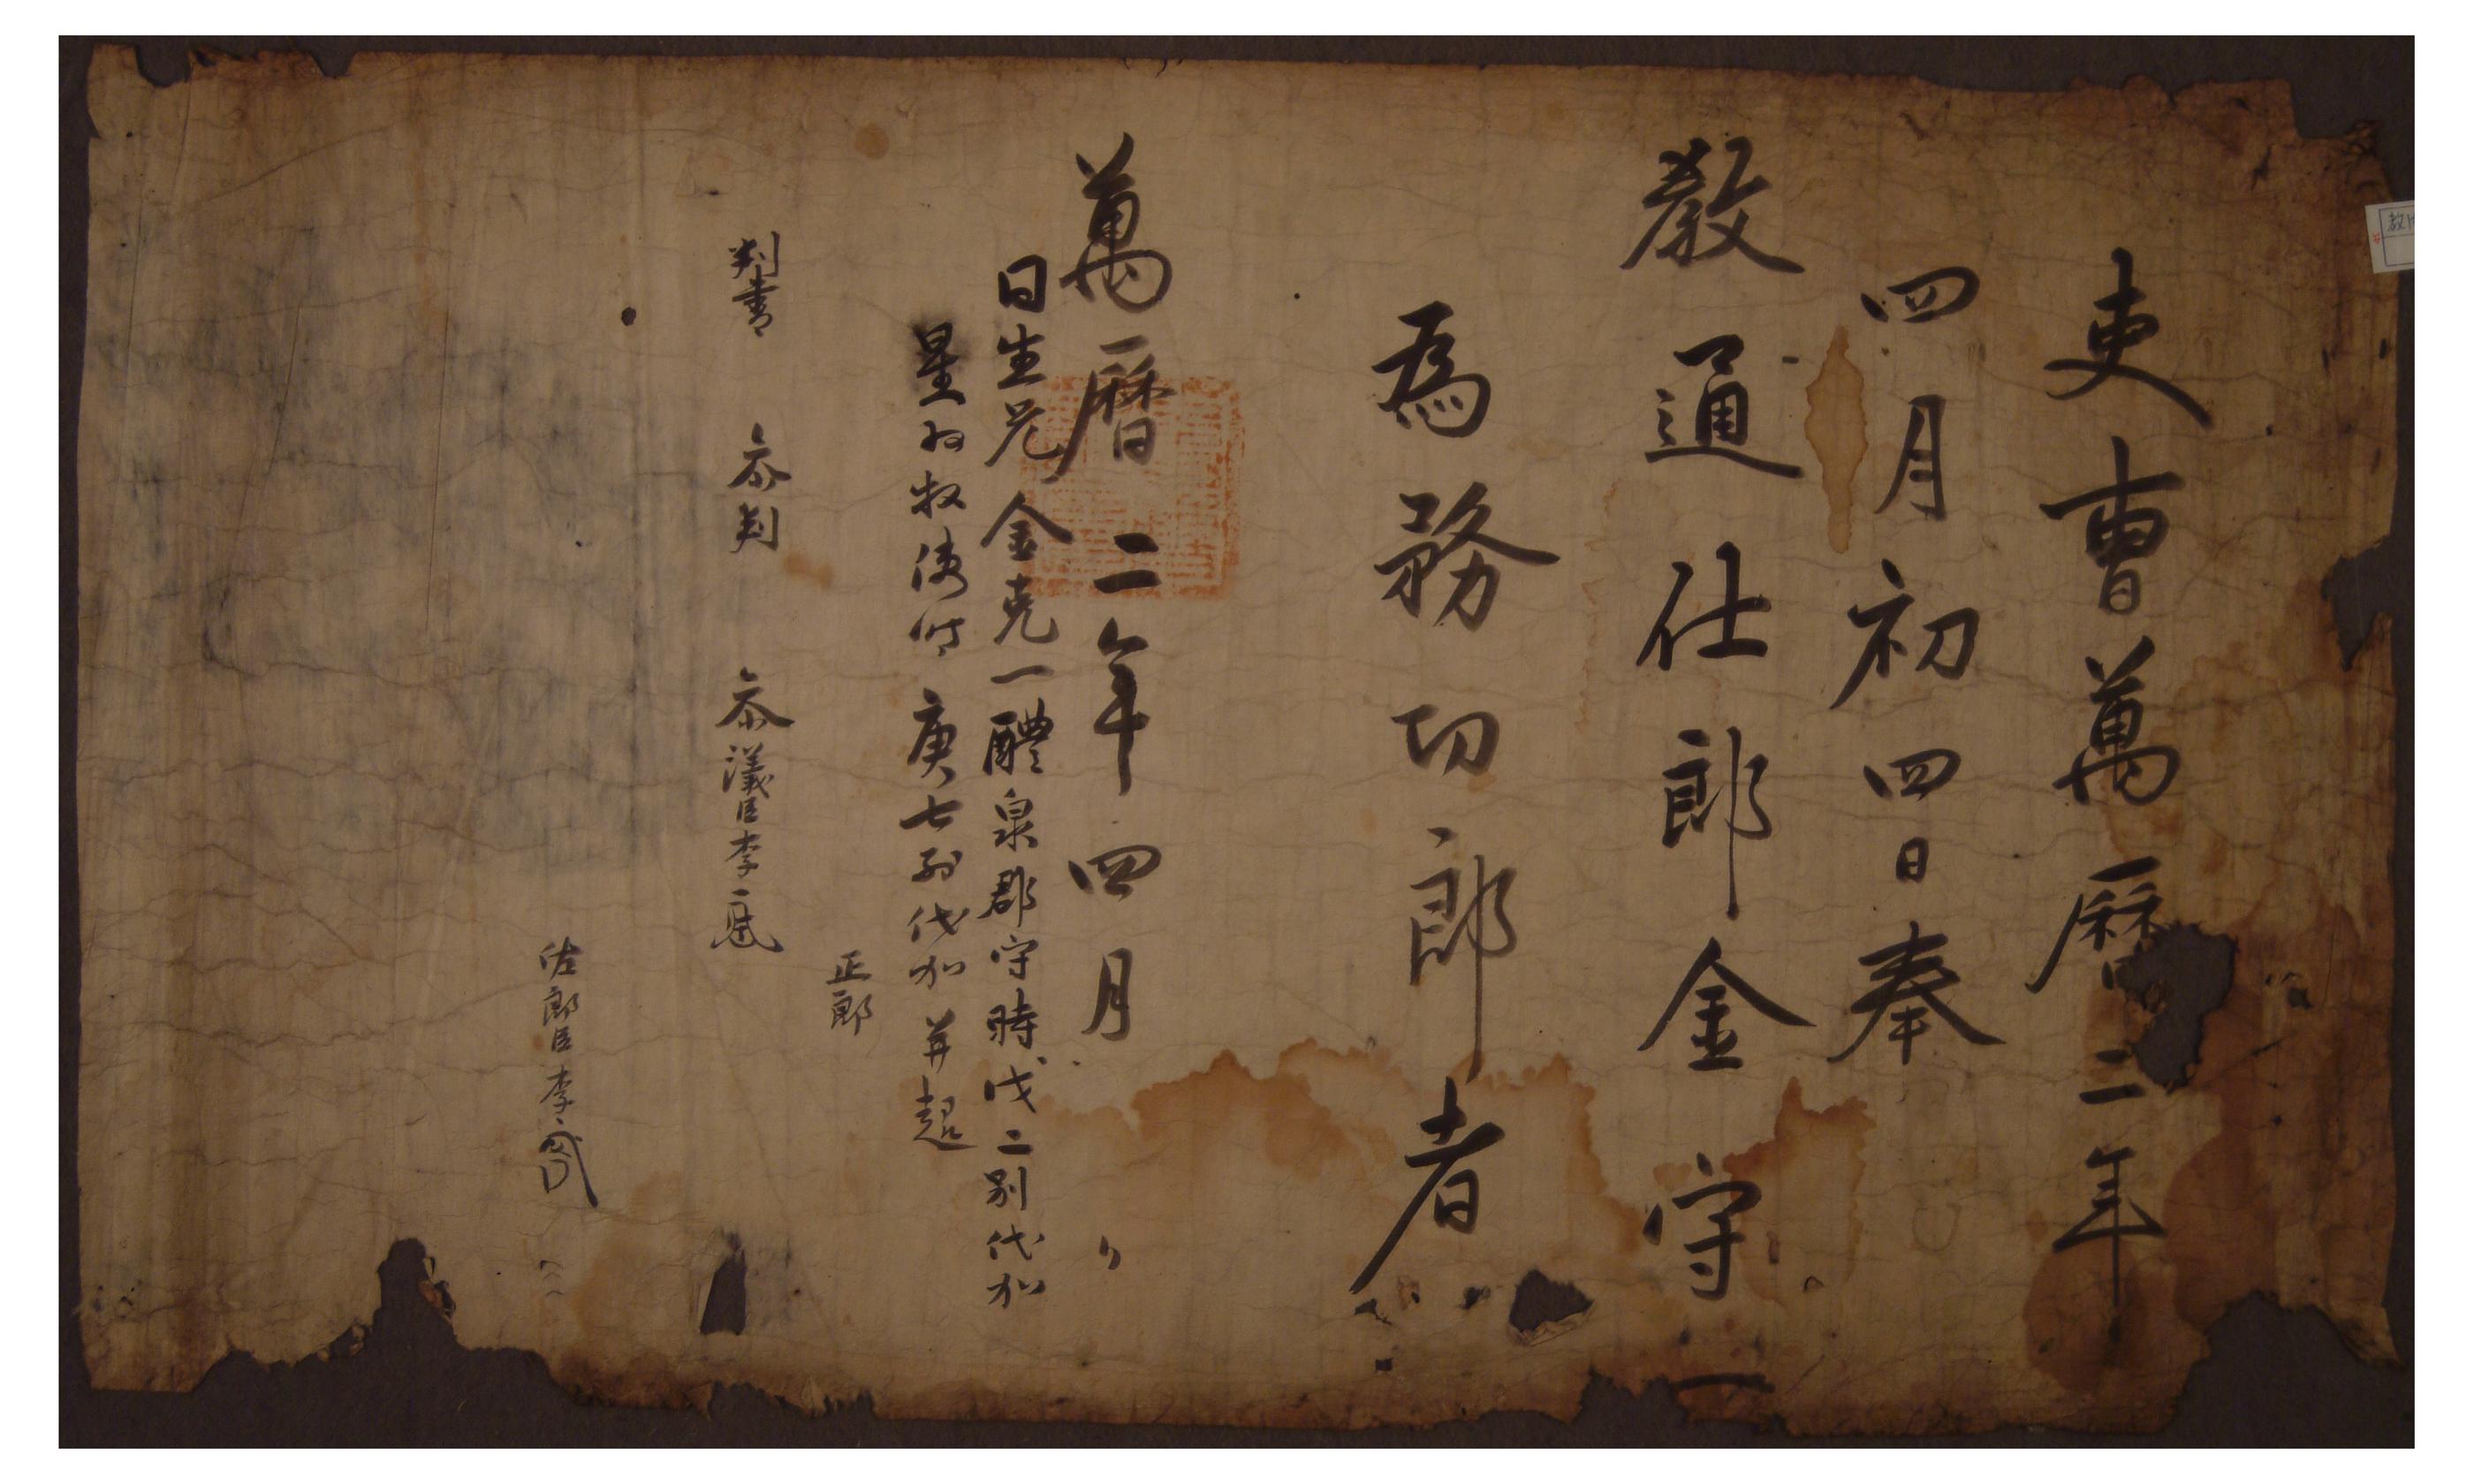 吏曹萬曆二年
四月初四日奉
敎通仕郎金守一
爲務功郎者
萬曆二年四月 日
生兄金克一醴泉郡守時戊二別代加
星州牧使時庚七別代加并超
正郎
判書 參判 參議臣李
佐郎臣李